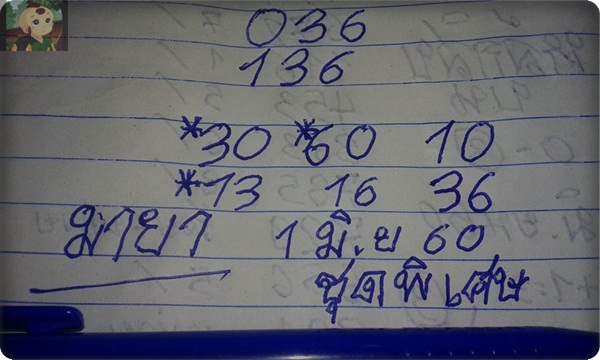 036
136
*30 *60 10
*13 16 36
มายา 1 มิ.ย 60
ชุดพิเศษ